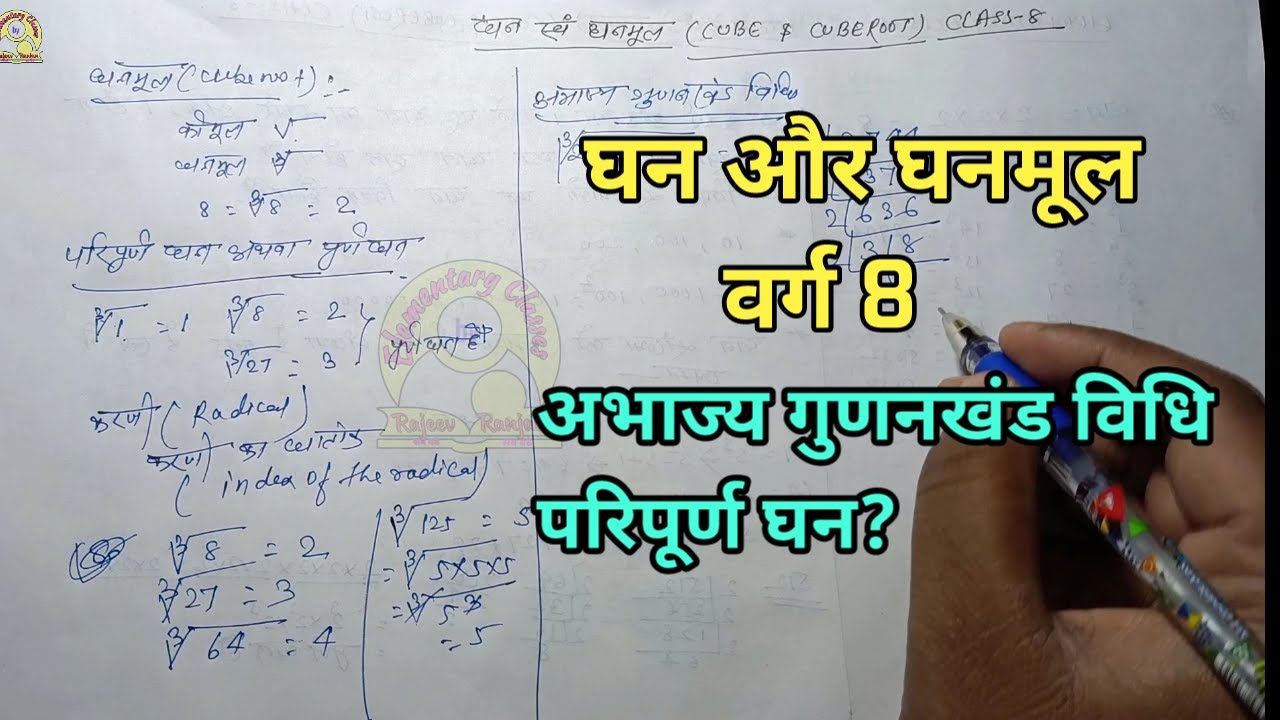 Elementary Classes
by
Rajeev Ranjan
घन एवं घनमूल (CUBE & CUBEROOT) CLASS-8
घनमूल (cube root) :-
√
घनमूल ∛
8 = ∛8 = 2
परिपूर्ण घन अथवा पूर्ण घन
∛1 = 1 ∛8 = 2
∛27 = 3
पूर्ण घन है
करणी (Radical)
करणी का घातांक
(index of the radical)
∛8 = 2
∛27 = 3
∛64 = 4
∛125 = 5
= ∛5×5×5
= ∛5³
= 5
अभाज्य गुणनखंड विधि
2 636
318
घन और घनमूल
वर्ग 8
अभाज्य गुणनखंड विधि
परिपूर्ण घन?
Elementary Classes
by
Rajeev Ranjan